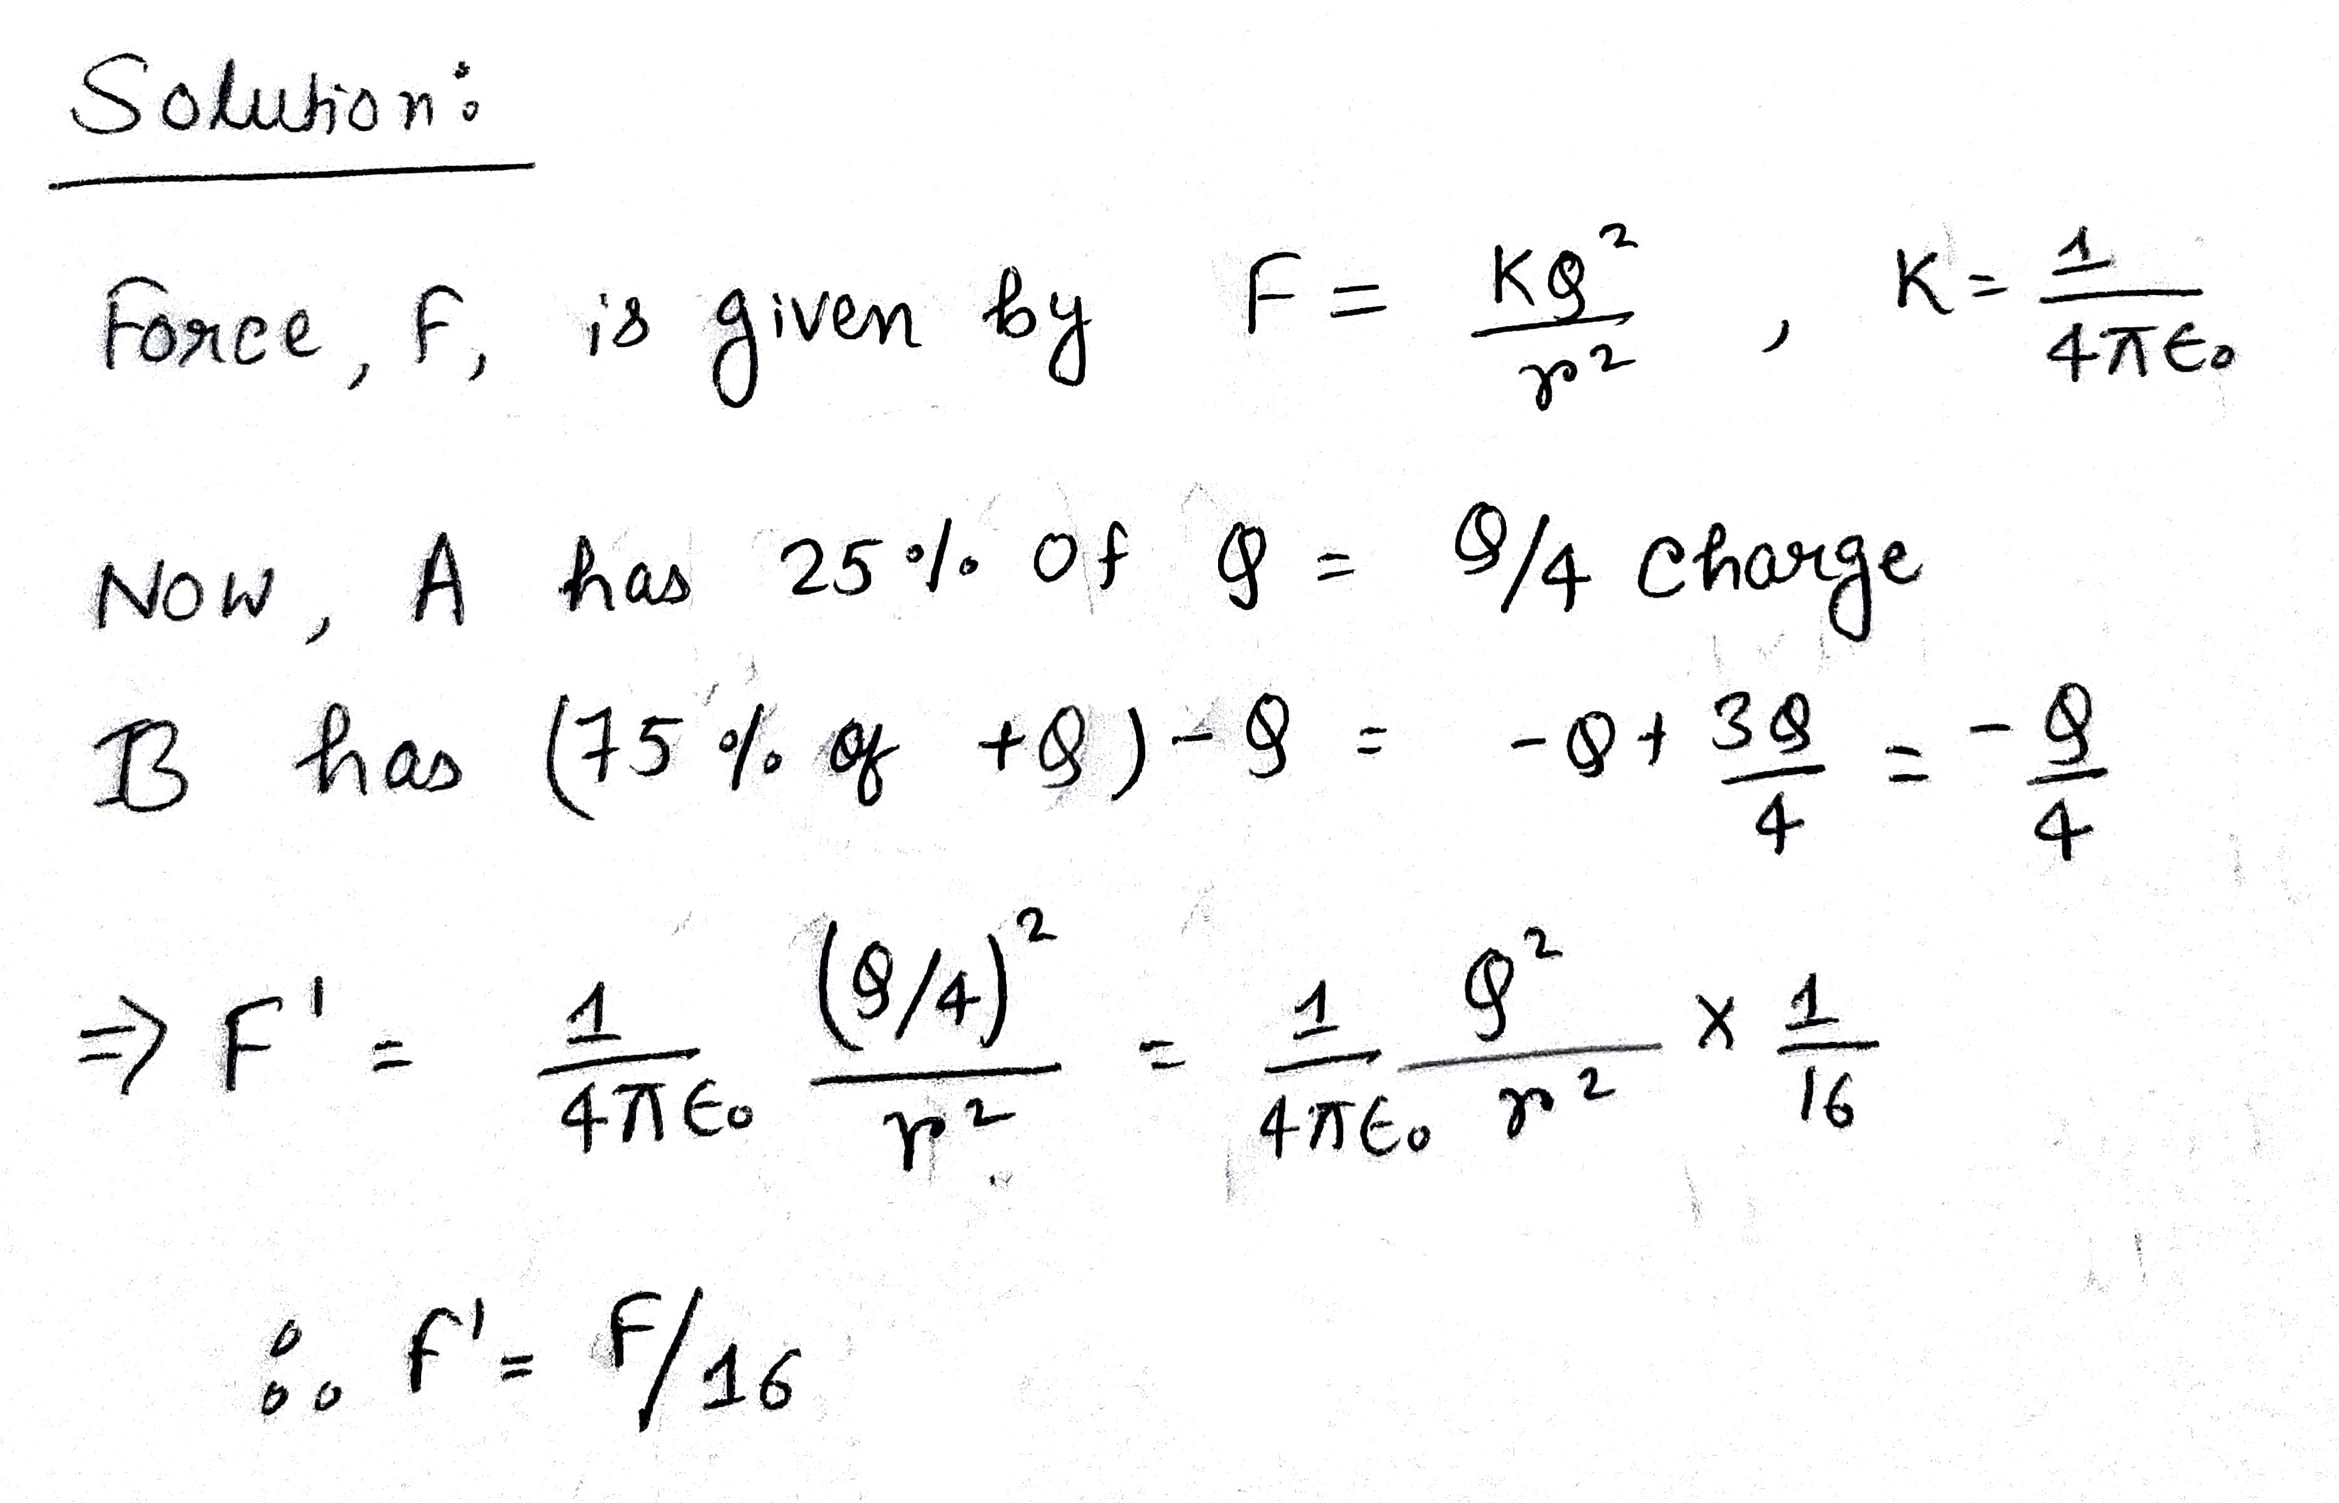 Solution:
Force, F, is given by F = KQ²/r² , K = 1/4πϵ₀
Now, A has 25% of Q = Q/4 charge
B has (75% of +Q) - Q = -Q + 3Q/4 = -Q/4
⇒ F' = 1/4πϵ₀ (Q/4)²/r² = 1/4πϵ₀ Q²/r² × 1/16
∴ F' = F/16